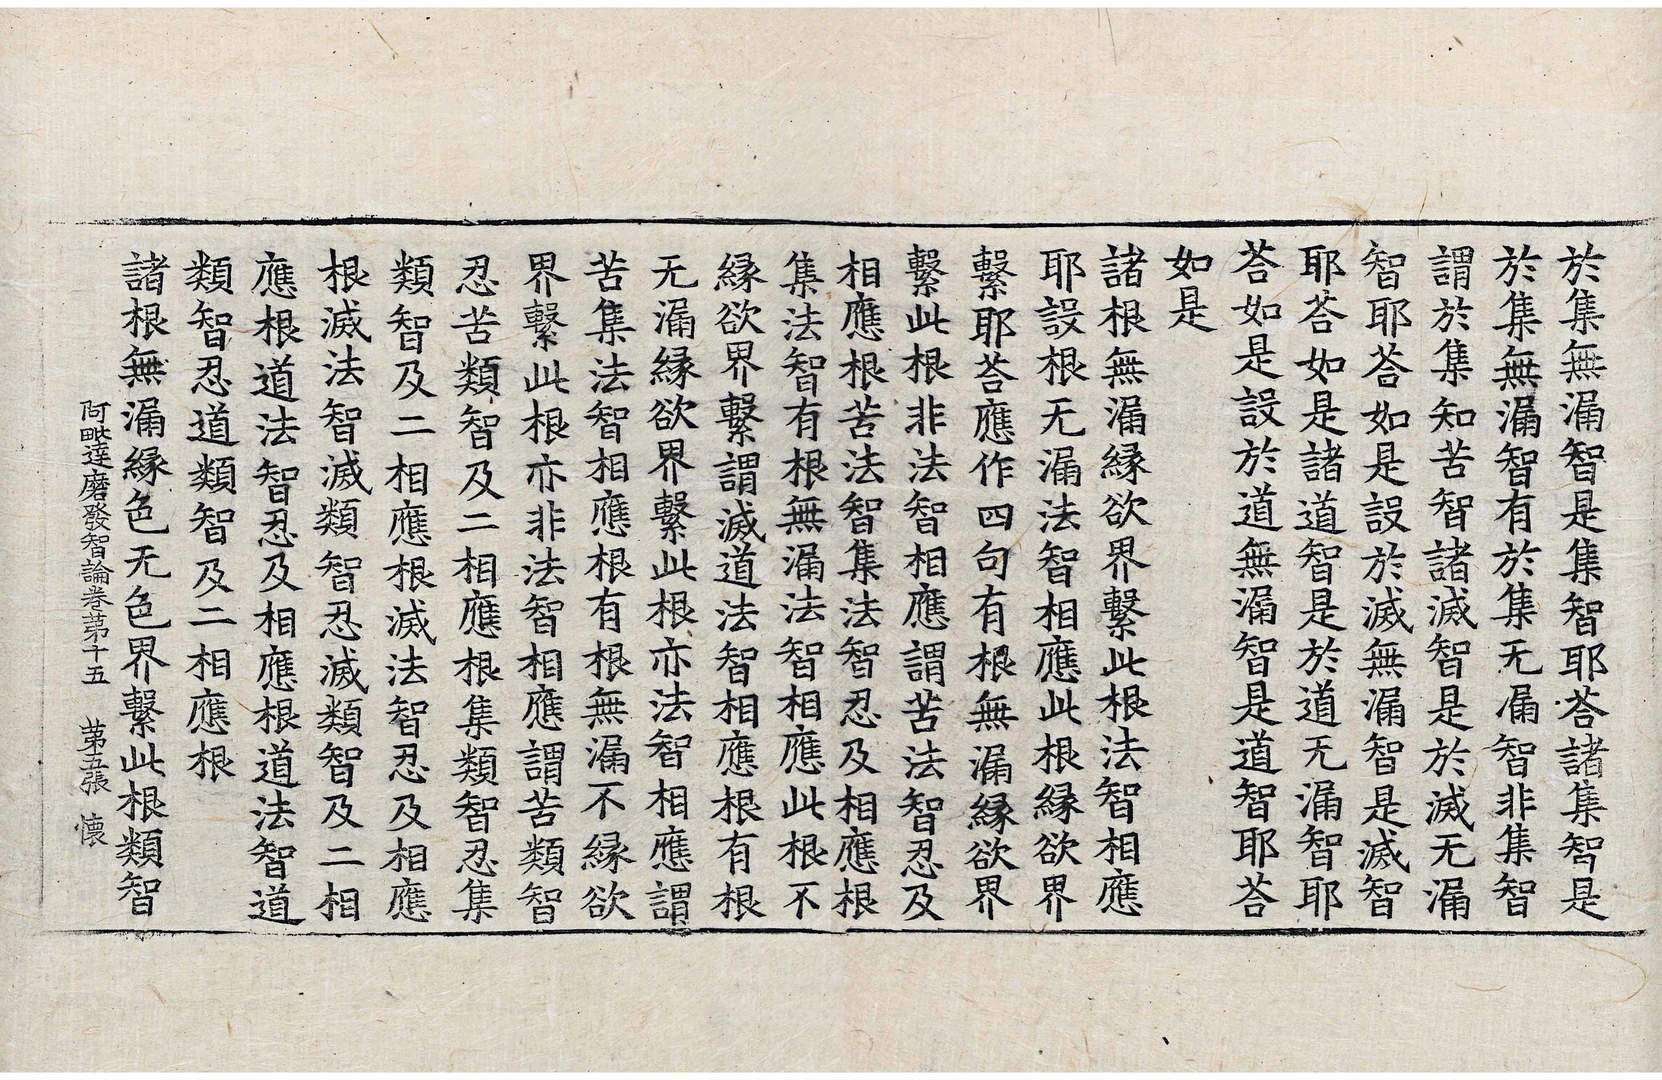 於集無漏智是集智耶荅諸集智是
於集無漏智有於集无漏智非集智
謂於集知苦智諸滅智是於滅无漏
智耶荅如是設於滅無漏智是滅智
耶荅如是諸道智是於道无漏智耶
荅如是設於道無漏智是道智耶荅
如是
諸根無漏縁欲界繫此根法智相應
耶設根无漏法智相應此根縁欲界
繫耶荅應作四句有根無漏縁欲界
繫此根非法智相應謂苦法智忍及
相應根苦法智集法智忍及相應根
集法智有根無漏法智相應此根不
縁欲界繫謂滅道法智相應根有根
无漏縁欲界繫此根亦法智相應謂
苦集法智相應根有根無漏不縁欲
界繫此根亦非法智相應謂苦類智
忍苦類智及二相應根集類智忍集
類智及二相應根滅法智忍及相應
根滅法智滅類智忍滅類智及二相
應根道法智忍及相應根道法智道
類智忍道類智及二相應根
諸根無漏縁色无色界繫此根類智
阿毗達磨發智論卷苐十五 苐五張 懷